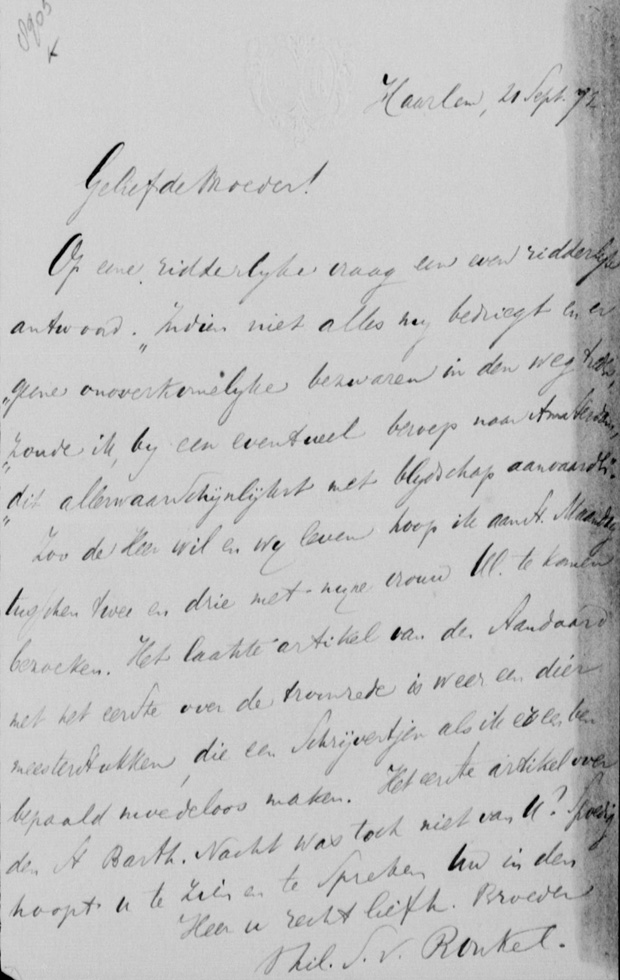 8905
x
Haarlem, 21 Sept. 72
Geliefde Broeder!
Op eene ridderlyke vraag een even ridderlyk
antwoord. "Indien niet alles my bedriegt en er
"geene onoverkomelyke bezwaren in den weg treden,
"zoude ik, by een eventueel beroep naar Amsterdam,
"dit allerwaarschynlykst met blydschap aanvaarden."
Zoo de Heer wil en wy leven hoop ik aanst. Maandag
tusschen twee en drie met myne vrouw Ul. te komen
bezoeken. Het laatste artikel van den Standaard
met het eerste over de troonrede is weer een dier
meesterstukken, die een Schrijvertjen als ik er een ben
bepaald moedeloos maken. Het eerste artikel over
den St Barth. Nacht was toch niet van U? Spoedig
hoopt u te zien en te spreken Uw in den
Heer u recht liefh. Broeder
Phil. S. v. Ronkel.